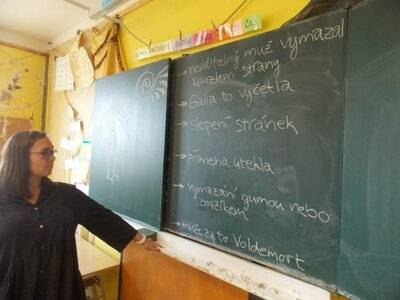 → neviditelný muž vymazal
kouzlem strany
→ Gáila to vyčetla
→ slepení stránek
→ písmena utekla
→ vymazání gumou nebo
zmizíkem
→ může za to Voldemort